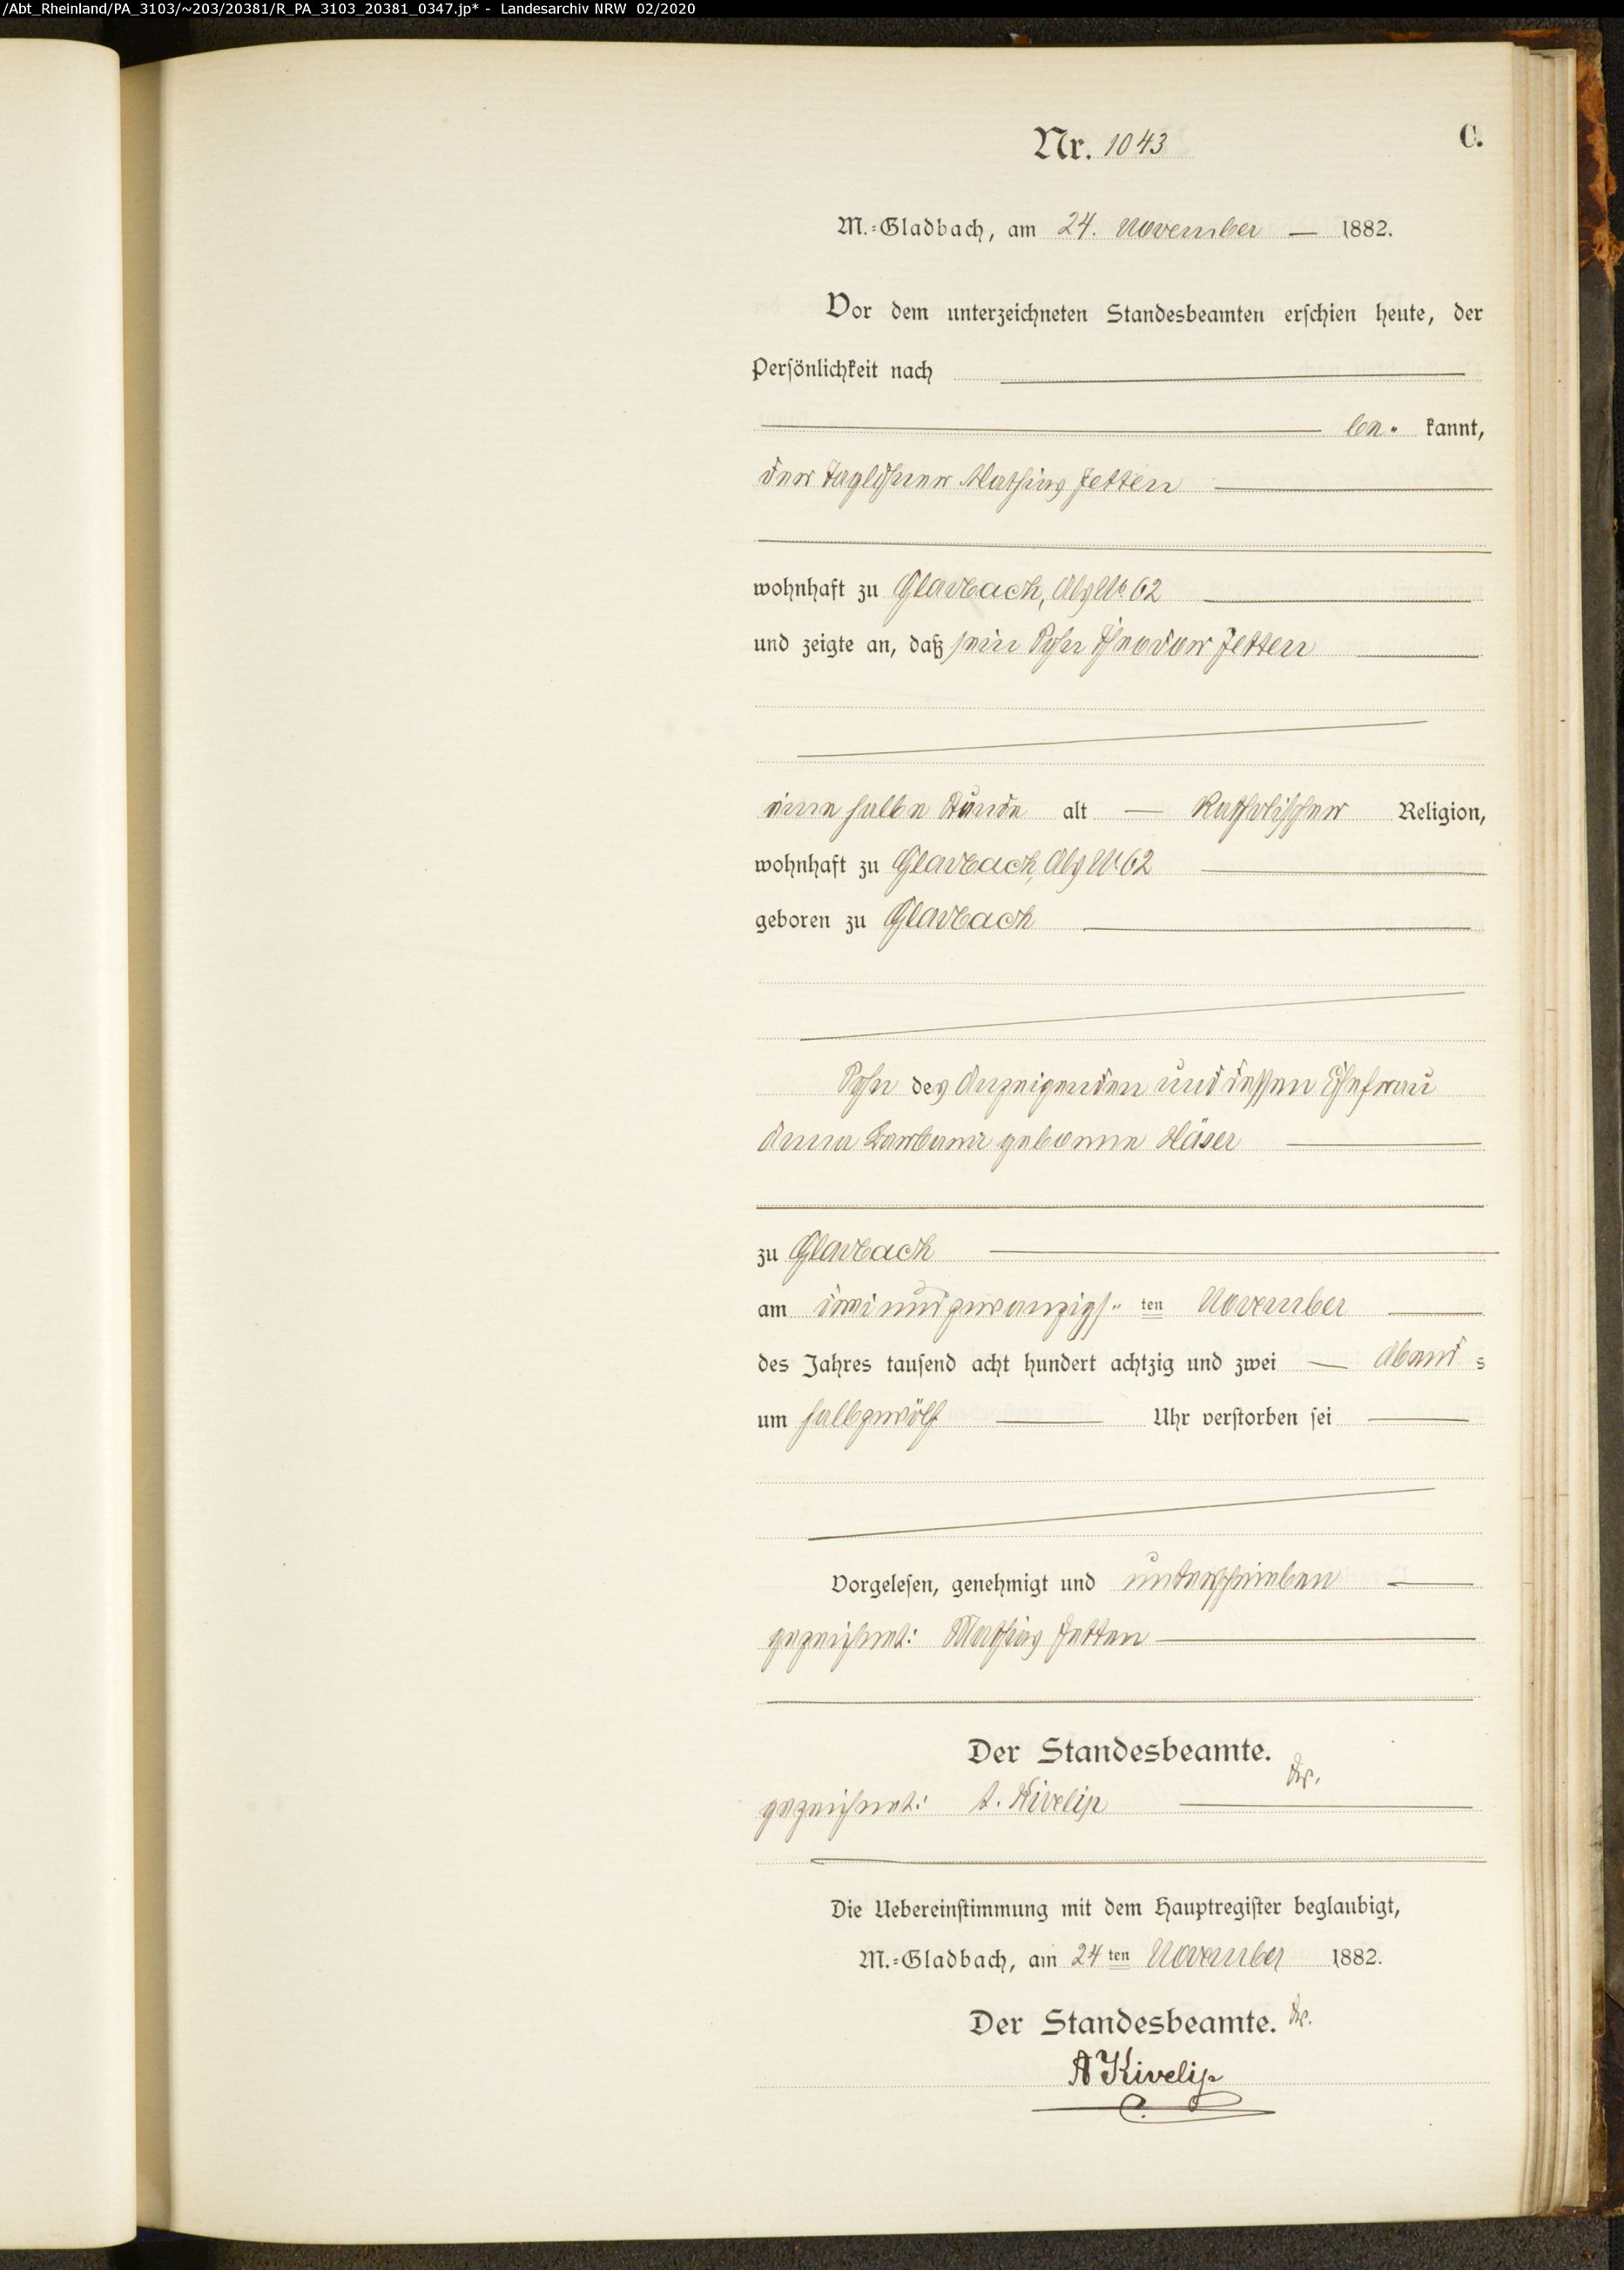 /Abt_Rheinland/PA_3103/~203/20381/R_PA_3103_20381_0347.jp* - Landesarchiv NRW 02/2020
C.
Nr. 1043
M.-Gladbach, am 24. November — 1882.
Vor dem unterzeichneten Standesbeamten erschien heute, der
Persönlichkeit nach
be- kannt,
der Taglöhner Mathias Jetten
wohnhaft zu Gladbach, Abs No. 62
und zeigte an, daß sein Sohn Theodor Jetten
eine halbe Stunde alt — katholischer Religion,
wohnhaft zu Gladbach, Abs No 62
geboren zu Gladbach
Sohn des Anzeigenden und dessen Ehefrau
Anna Barbara geborene Häser
zu Gladbach
am dreiundzwanzigs- ten November
des Jahres tausend acht hundert achtzig und zwei — Abend s
um halbzwölf Uhr verstorben sei
Vorgelesen, genehmigt und unterschrieben
gezeichnet: Mathias Jetten
Der Standesbeamte.
gezeichnet: A. Kivelip
Die Uebereinstimmung mit dem Hauptregister beglaubigt,
M.-Gladbach, am 24 ten November 1882.
Der Standesbeamte.
A Kivelip